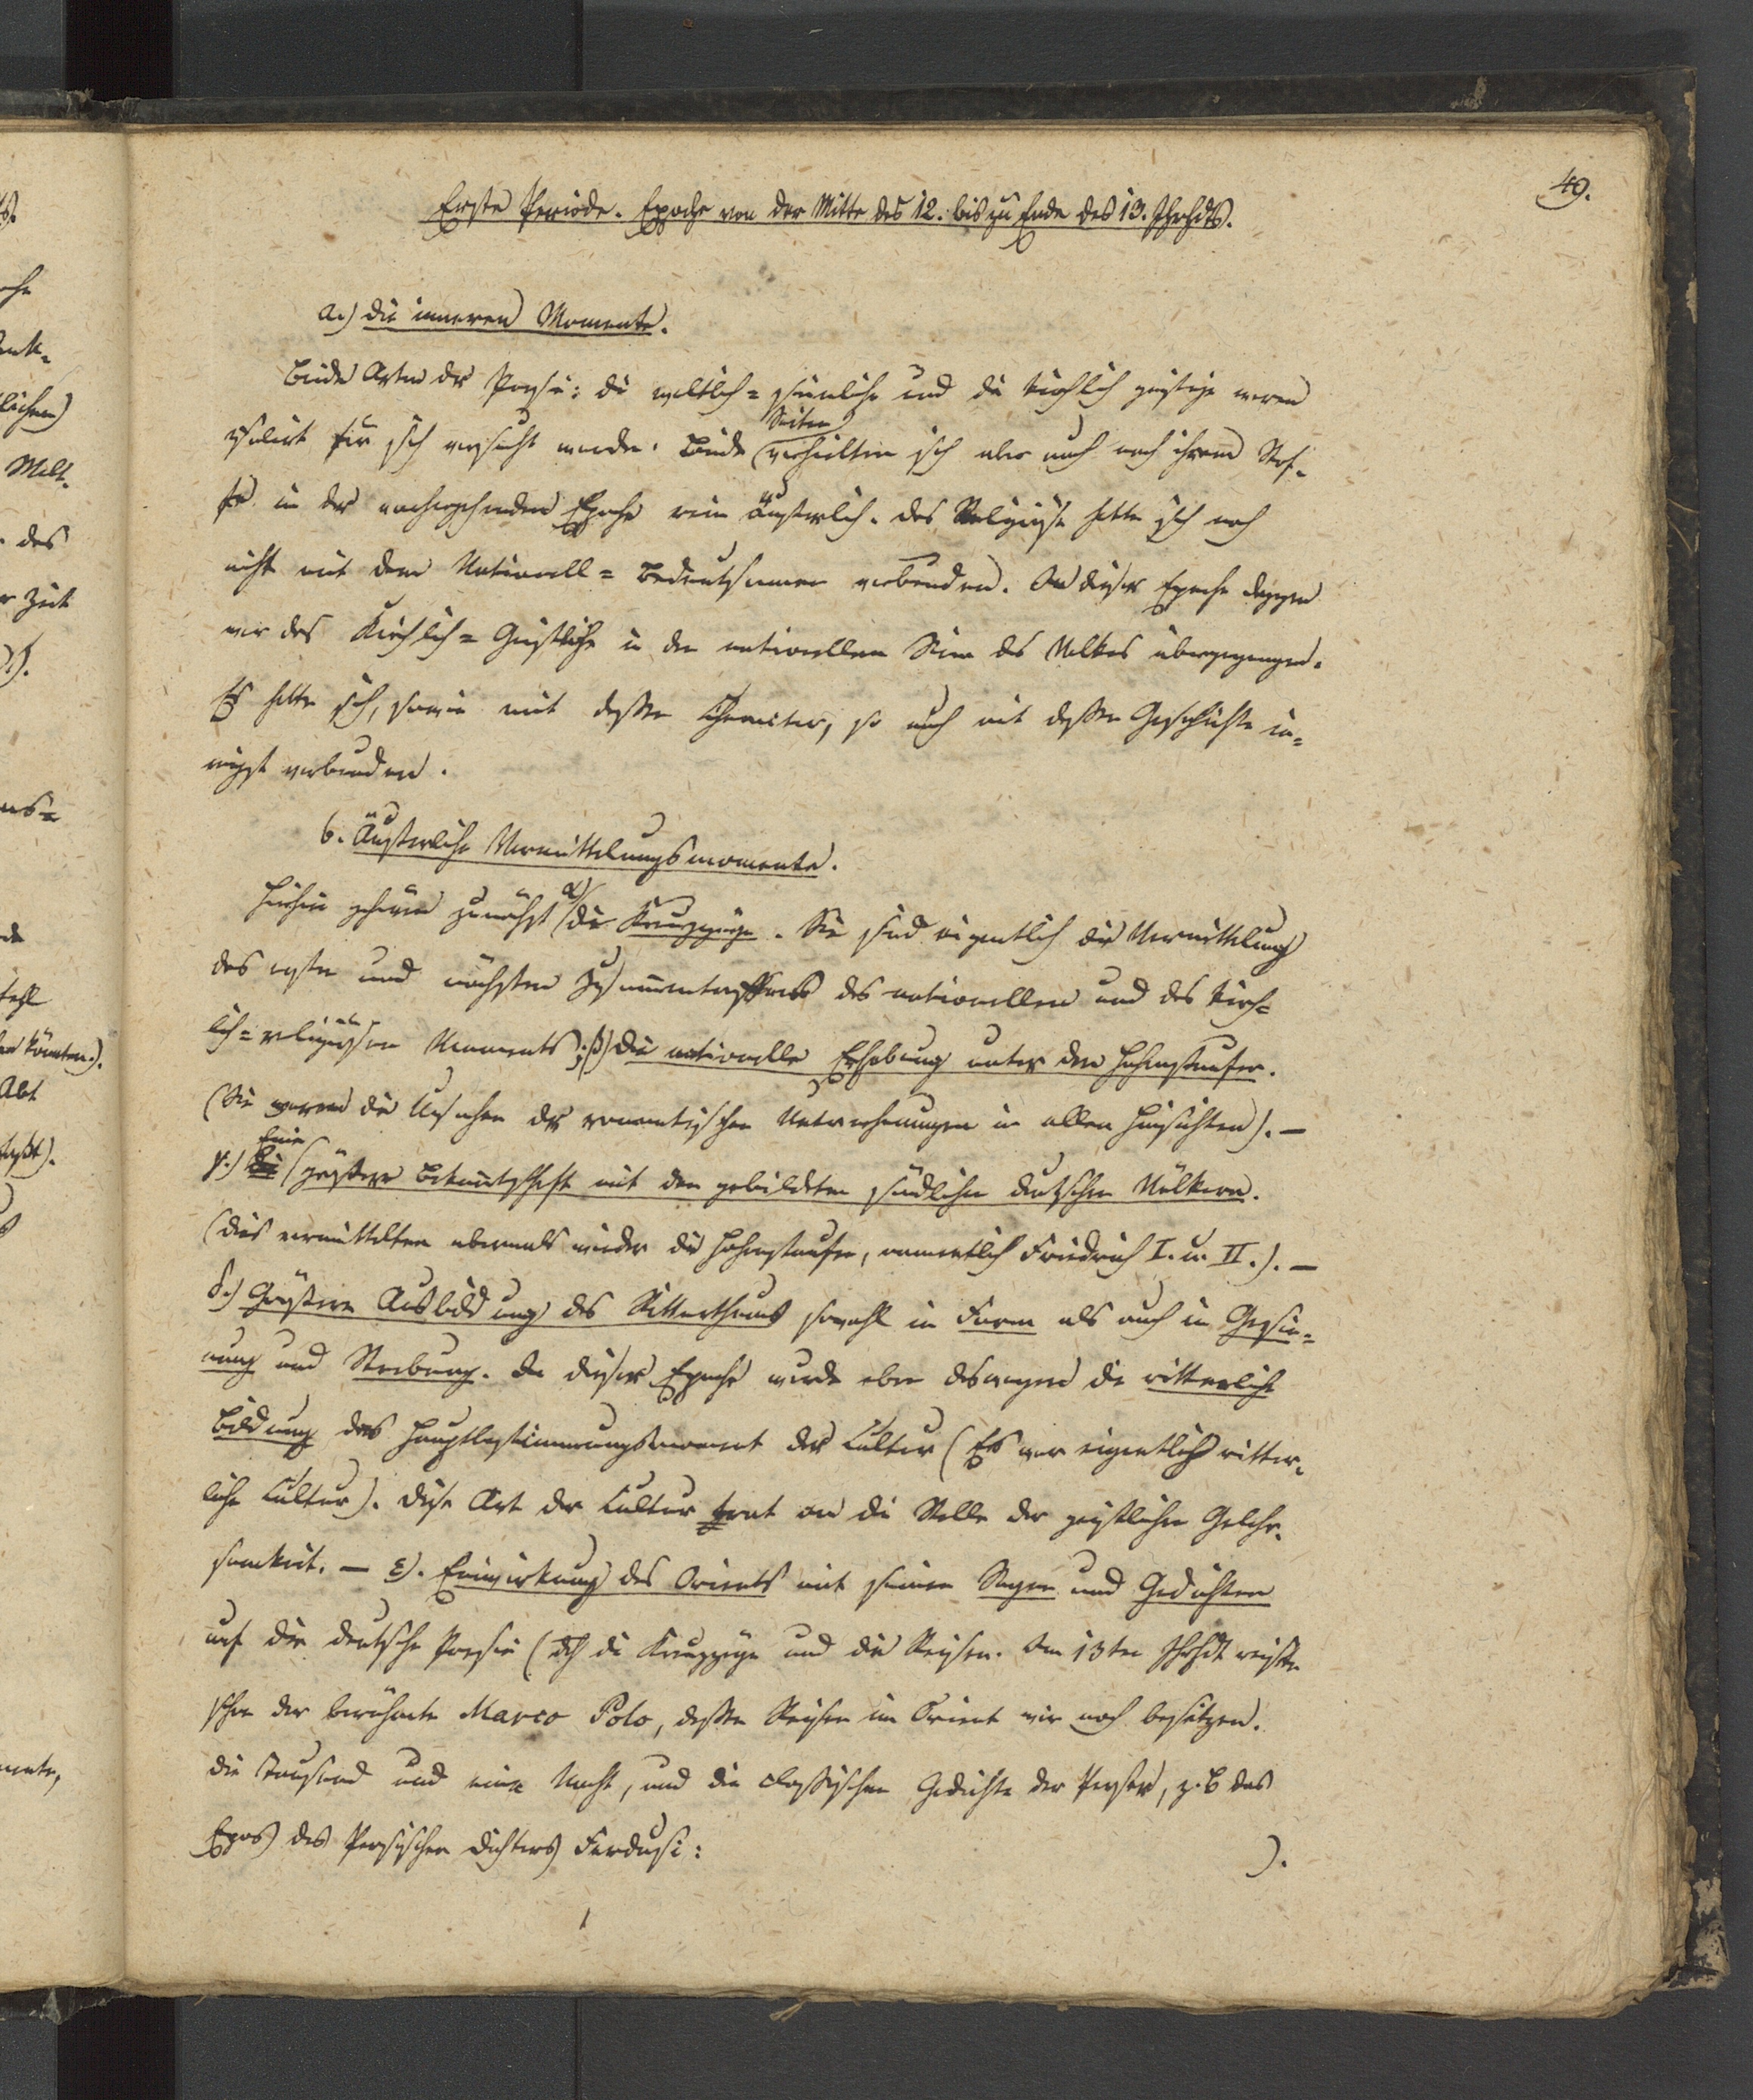 49.
Erste Periode. Epoche von der Mitte des 12. bis zu Ende des 13. Jhrhdts.
a.) die inneren Momente.
Beide Arten der Poesie: die weltlich = sinnliche und die kirchlich geistige waren
isolirt für sich versucht worden. Beide Seiten verhielten sich aber auch nach ihrem Stof-
fe in der vorhergehenden Epoche rein äußerlich. Das Religiöse hatte sich noch
nicht mit dem Nationell = Bedeutsamen verbunden. In dieser Epoche dagegen
war das Kirchlich = Geistliche in den nationellen Sinn des Volkes übergegangen.
Es hatte sich, sowie mit dessen Charakter, so auch mit dessen Geschichte in=
nigst verbunden.
b. Äußerliche Vermittelungsmomente.
Hierhin gehören zunächst α) die Kreuzzüge. Sie sind eigentlich die Vermittelung
des ersten und nächsten Zusammentreffens des nationellen und des kirch=
lich = religiösen Moments; β) die nationelle Erhebung unter den Hohenstaufen.
(Sie waren die Ursachen der romantischen Unternehmungen in allen Hinsichten). —
γ.) die Eine größere Bekanntschaft mit den gebildeten südlichen deutschen Völkern.
(dies vermittelten abermals wieder die Hohenstaufen, namentlich Friedrich I. u. II.). —
δ.) Größere Ausbildung des Ritterthums sowohl in Form als auch in Gesin=
nung und Strebung. In dieser Epoche wurde eben deswegen die ritterliche
Bildung das Hauptbestimmungsmoment der Cultur (Es war eigentlich ritter-
liche Cultur). Diese Art der Cultur trat an die Stelle der geistlichen Gelehr-
samkeit. — ε). Einwirkung des Orients mit seinen Sagen und Gedichten
auf die deutsche Poesie (dch die Kreuzzüge und die Reisen. Im 13ten Jhrhdt reiste
schon der berühmte Marco Polo, dessen Reisen im Orient wir noch besitzen.
die Tausend und eine Nacht, und die classischen Gedichte der Perser, z. B das
Epos des Persischen Dichters Ferdusi: ).